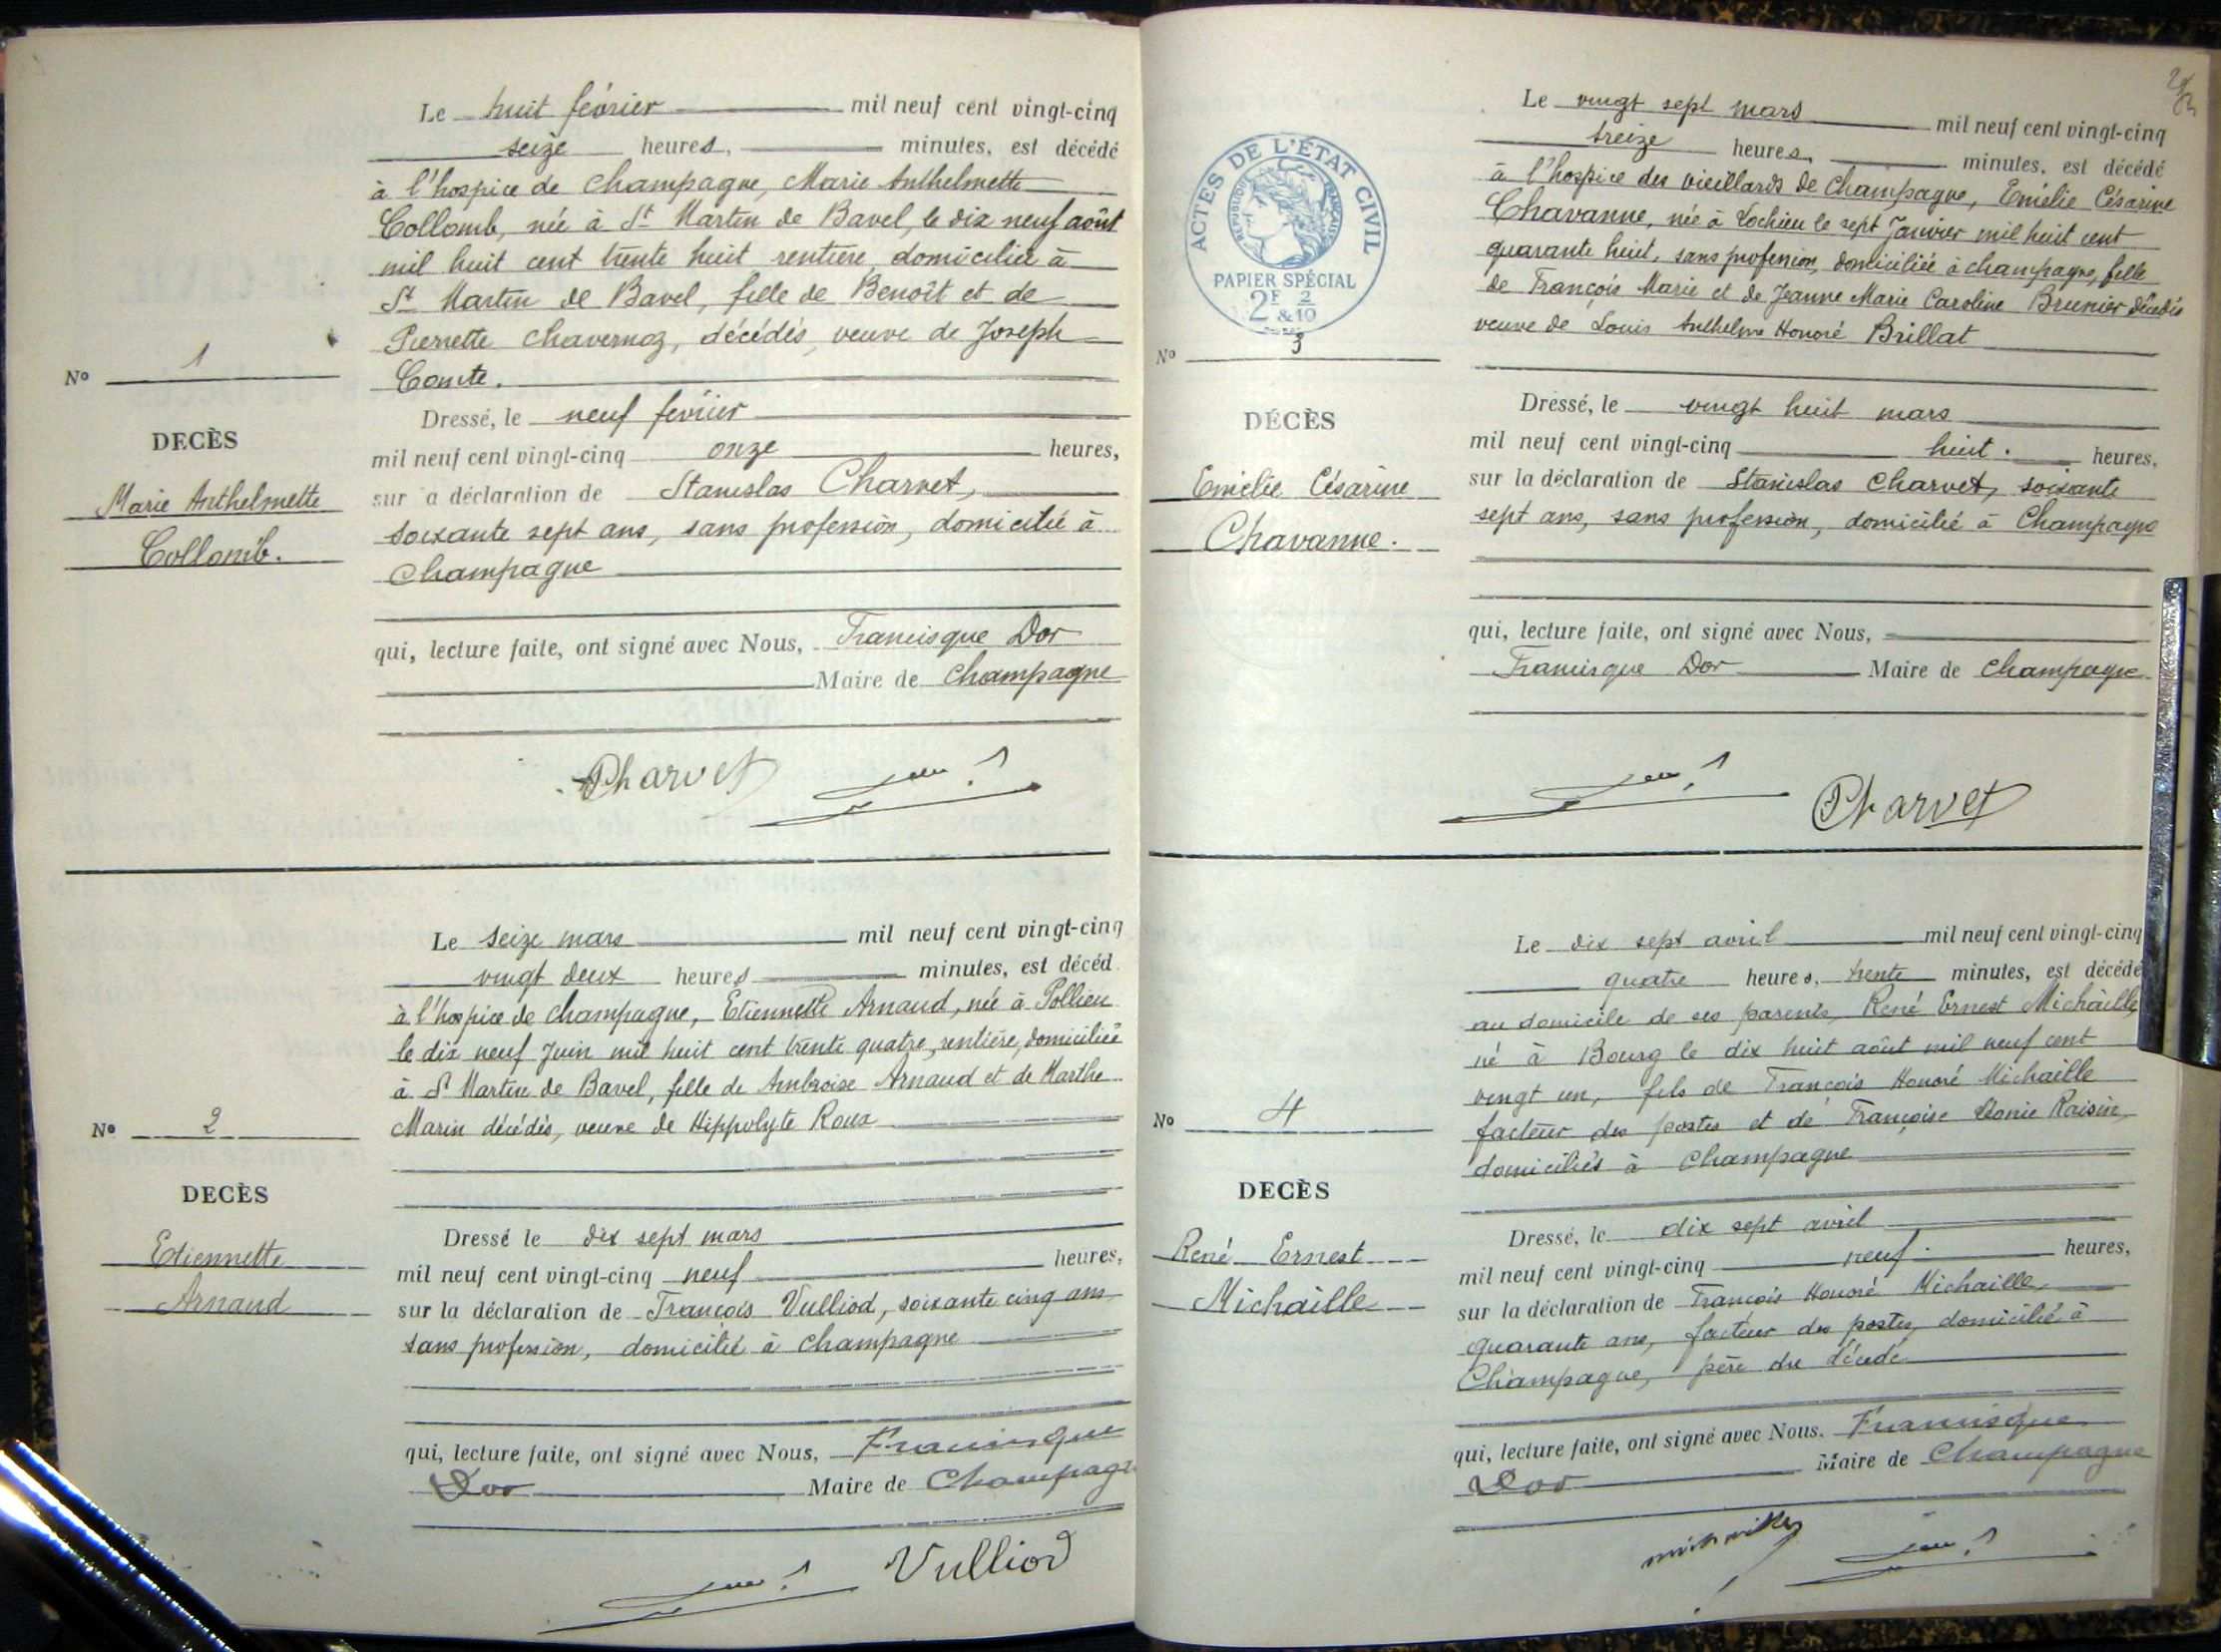 Le huit février mil neuf cent vingt-cinq
seize heures, minutes, est décédé
à l'hospice de Champagne, Marie Anthelmette
Collomb, née à St Martin de Bavel, le dix neuf août
mil huit cent trente huit rentière, domiciliée à
St Martin de Bavel, fille de Benoît et de
Pierrette Chavernoz, décédés, veuve de Joseph
Comte.
No 1
DECÈS
Marie Anthelmette
Collomb.
Dressé, le neuf février
mil neuf cent vingt-cinq onze heures,
sur a déclaration de Stanislas Charvet,
soixante sept ans, sans profession, domicilié à
Champagne
qui, lecture faite, ont signé avec Nous, Francisque Dor
Maire de Champagne
Charvet
Le seize mars mil neuf cent vingt-cinq
vingt deux heures minutes, est décéd
à l'hospice de Champagne, Etiennette Arnaud, née à Pollieu
le dix neuf Juin mil huit cent trente quatre, rentière, domiciliée
à St Martin de Bavel, fille de Ambroise Arnaud et de Marthe
Marin décédés, veuve de Hippolyte Roux
No 2
DECÈS
Etiennette
Arnaud
Dressé le dix sept mars
mil neuf cent vingt-cinq neuf heures,
sur la déclaration de François Vulliod, soixante cinq ans
sans profession, domicilié à Champagne
qui, lecture faite, ont signé avec Nous, Francisque
Dor Maire de Champagne
Vulliod
ACTES DE L'ÉTAT CIVIL
RÉPUBLIQUE FRANÇAISE
PAPIER SPÉCIAL
2F & 2/10
Le vingt sept mars mil neuf cent vingt-cinq
treize heures, minutes, est décédé
à l'hospice des vieillards de Champagne, Emélie Césarine
Chavanne, née à Lochieu le sept Janvier mil huit cent
quarante huit, sans profession, domiciliée à Champagne, fille
de François Marie et de Jeanne Marie Caroline Brunier décédés
veuve de Louis Anthelme Honoré Brillat
No 3
DÉCÈS
Emélie Césarine
Chavanne.
Dressé, le vingt huit mars
mil neuf cent vingt-cinq huit. heures,
sur la déclaration de Stanislas Charvet, soixante
sept ans, sans profession, domicilié à Champagne
qui, lecture faite, ont signé avec Nous,
Francisque Dor Maire de Champagne
Charvet
Le dix sept avril mil neuf cent vingt-cinq
quatre heures, trente minutes, est décédé
au domicile de ses parents, René Ernest Michaille,
né à Bourg le dix huit août mil neuf cent
vingt un, fils de François Honoré Michaille
facteur des postes et de Françoise Raisin,
domiciliés à Champagne
No 4
DECÈS
René Ernest
Michaille
Dressé, le dix sept avril
mil neuf cent vingt-cinq neuf. heures,
sur la déclaration de François Honoré Michaille,
quarante ans, facteur des postes, domicilié à
Champagne, père du décédé
qui, lecture faite, ont signé avec Nous. Francisque
Dor Maire de Champagne